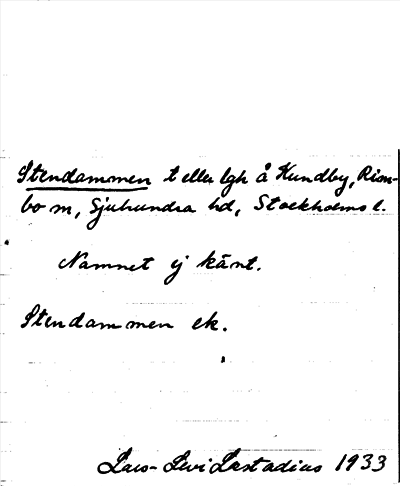 Stendammen t eller lgh å Kundby, Rim-
bo sn, Sjuhundra hd, Stockholms l.
Namnet ej känt.
Stendammen ek.
Lars-Levi Læstadius 1933